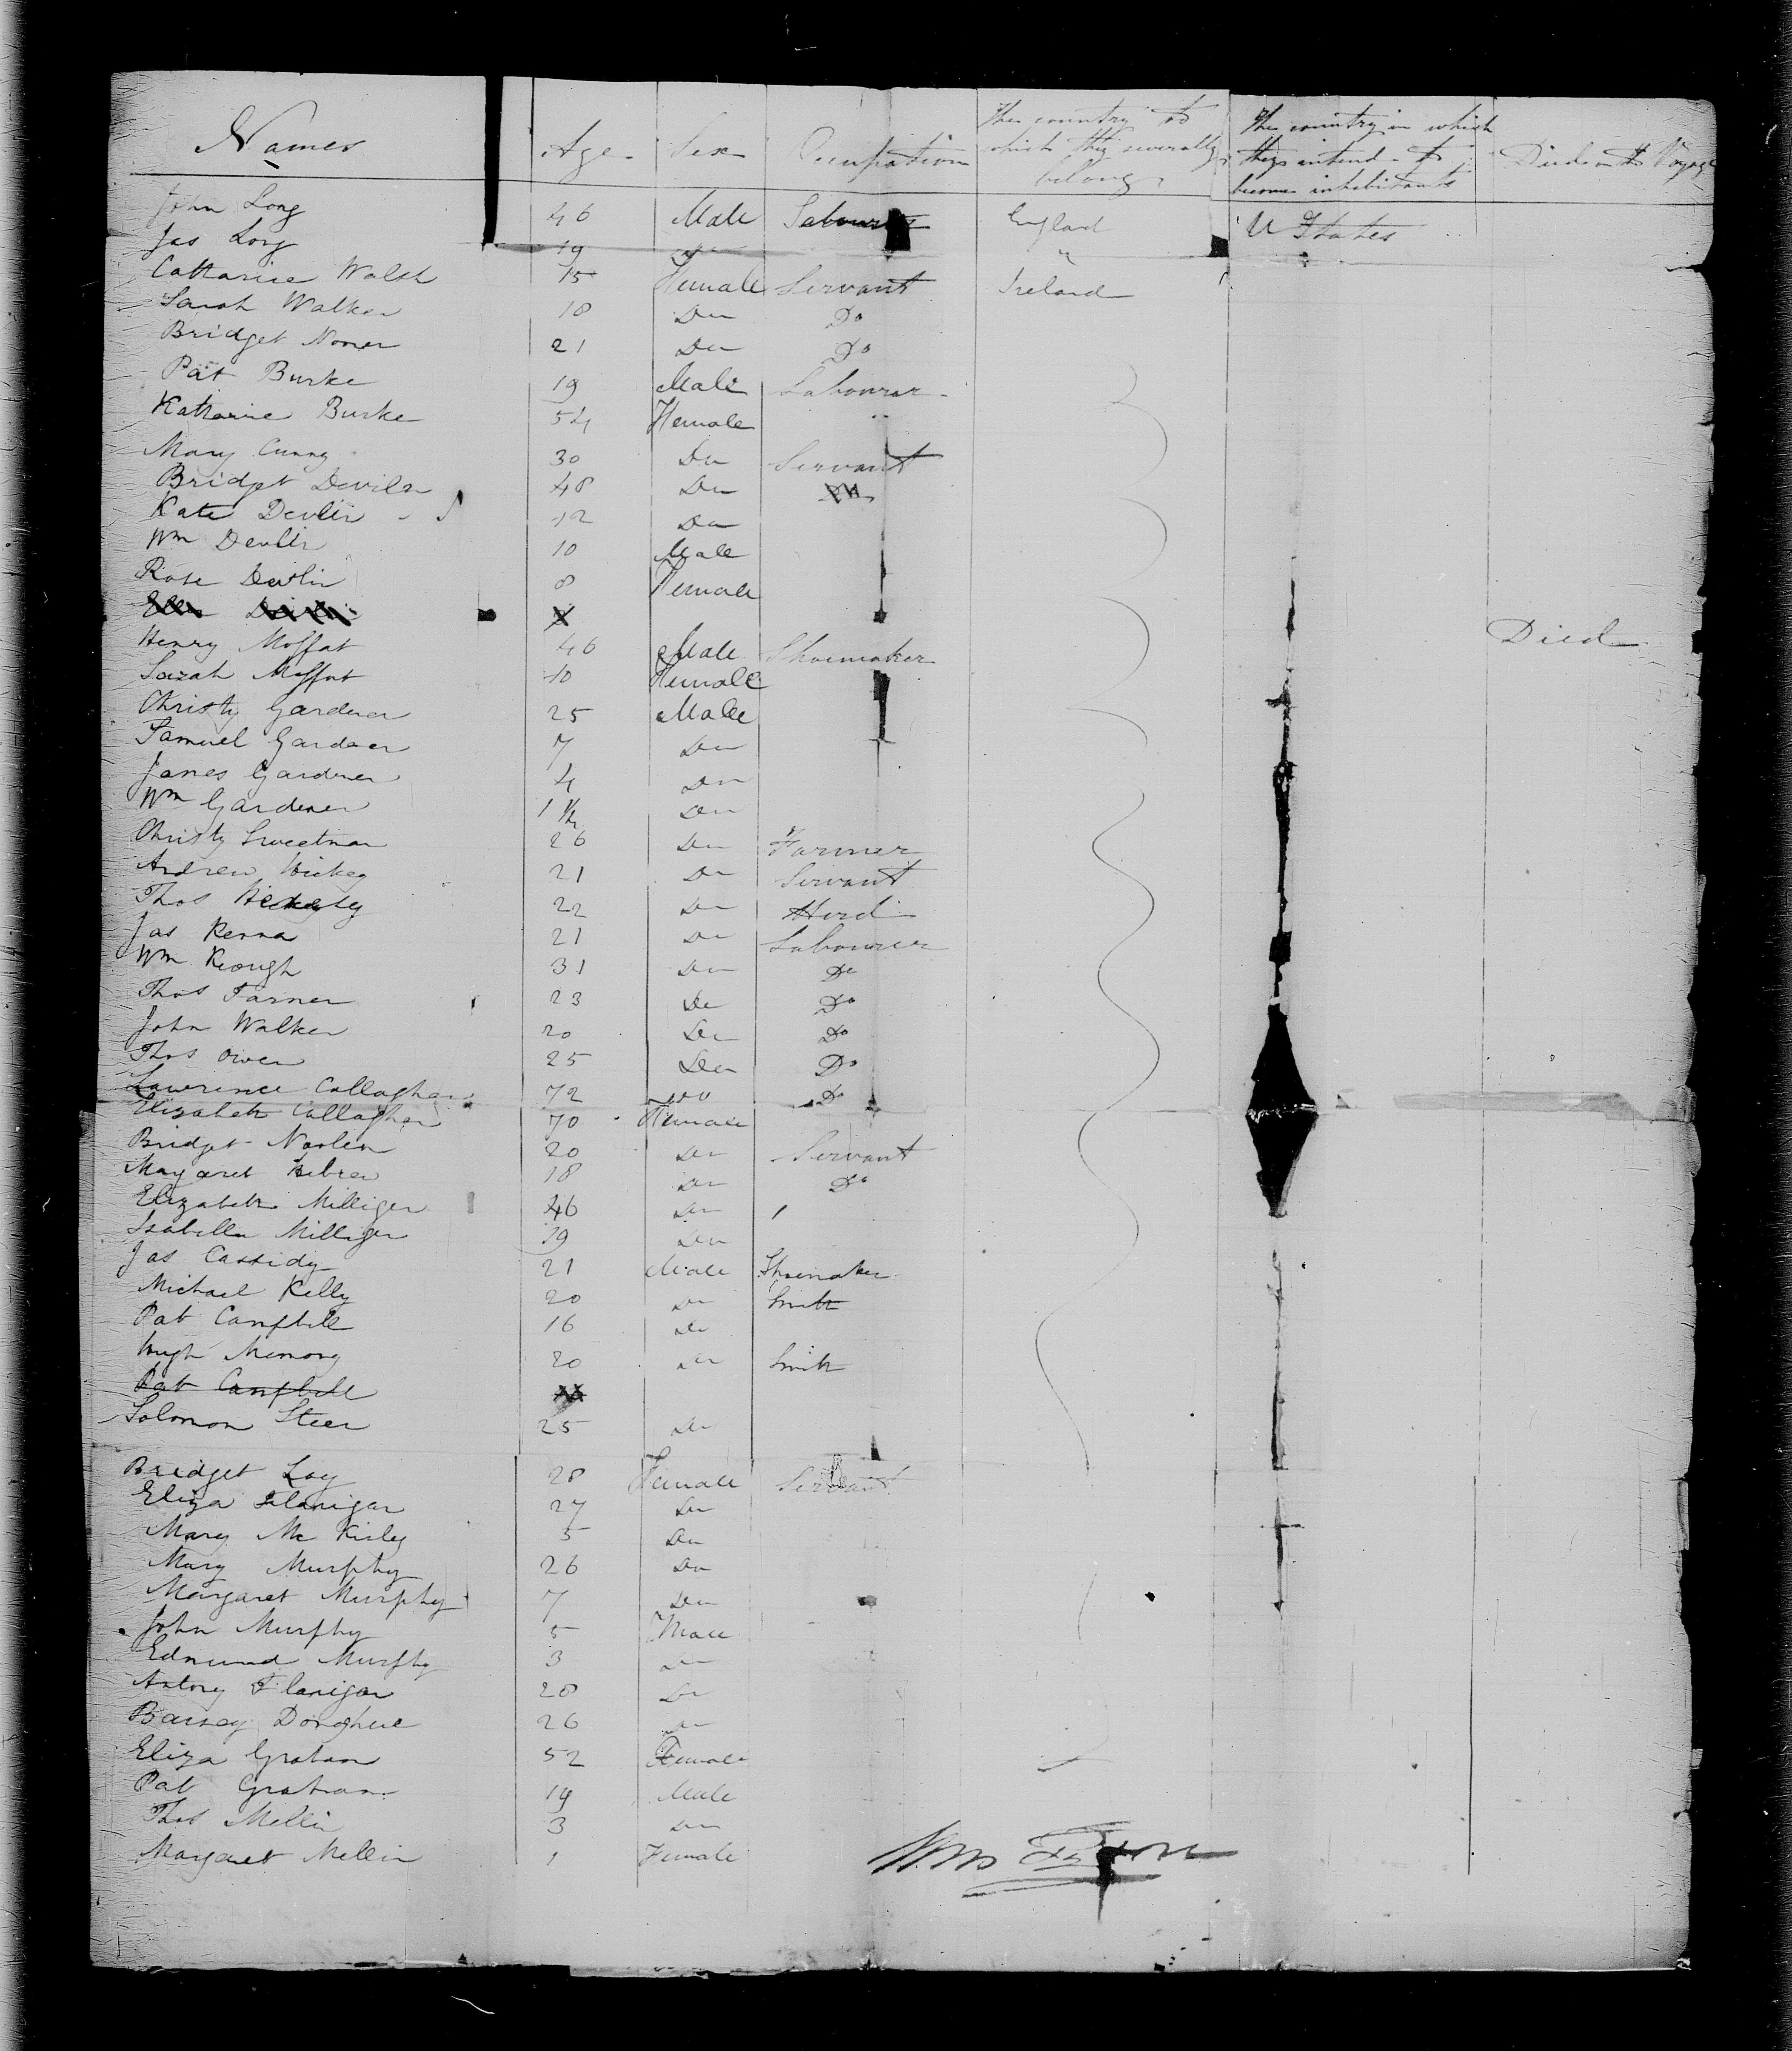 Names Age Sex Occupation The country to which they severally belong The country in which they intend to become inhabitants Died on the Voyage
John Long 46 Male Labourer England U States
Jas Long 19 Do "
Catharine Walsh 15 Female Servant Ireland
Sarah Walker 18 Do Do
Bridget 21 Do Do
Pat Burke 19 Male Labourer
Katharine Burke 54 Female
Mary 30 Do Servant
Bridget Devlin 48 Do
Kate Devlin 12 Do
Wm Devlin 10 Male
Rose Devlin 8 Female
Died
Henry Moffat 46 Male Shoemaker
Sarah Moffat 10 Female
Christy Gardener 25 Male
Samuel Gardener 7 Do
James Gardener 4 Do
Wm Gardener 1 1/2 Do
Christy Sweetman 26 Do Farmer
Andrew Hickey 21 Do Servant
Thos 22 Do Herd
Jas Kenna 21 Do Labourer
Wm Keough 31 Do Do
Thos Farner 23 Do Do
John Walker 20 Do Do
Thos Owen 25 Do Do
Lawrence Callaghan 72 Do Do
Elizabeth Callaghan 70 Female
Bridget 20 Do Servant
Margaret 18 Do Do
Elizabeth Milligen 46 Do
Isabella Milligen 19 Do
Jas Cassidy 21 Male Shoemaker
Michael Kelly 20 Do Smith
Pat Campbell 16 Do
Hugh 20 Do Smith
Pat Campbell
Solomon Steer 25 Do
Bridget 28 Female Servant
Eliza Flanigan 27 Do
Mary 5 Do
Mary Murphy 26 Do
Margaret Murphy 7 Do
John Murphy 5 Male
Edmund Murphy 3 Do
Antony Flanigan 28 Do
Barney Donoghue 26 Do
Eliza Graham 52 Female
Pat Graham 19 Male
Thos Mellin 3 Do
Margaret Mellin 1 Female